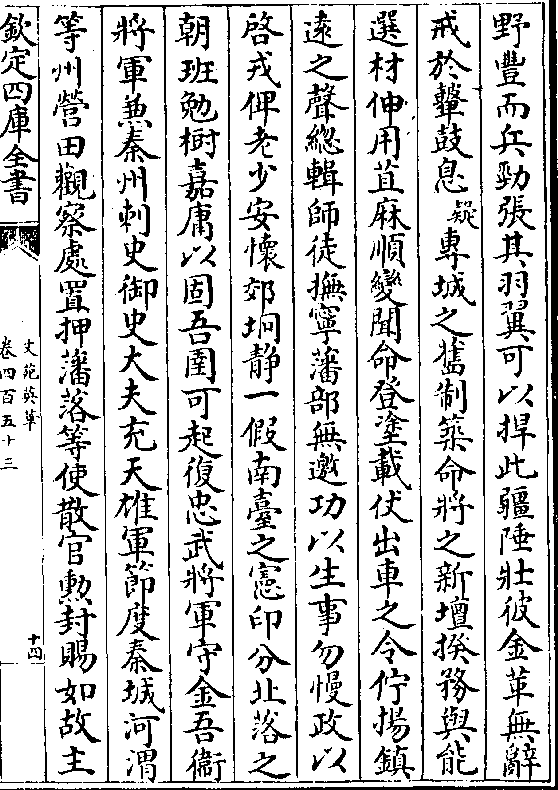 野豐而兵勁張其羽翼可以捍此疆陲壯彼金革無辭
戒於鼙鼓息疑專城之舊制築命將之新壇揆務與能
選材伸用苴麻順變聞命登塗載伏出車之令佇揚鎮
遠之聲總輯師徒撫寧藩部無邀功以生事勿慢政以
啓戎俾老少安懷郊坰静一假南臺之憲印分北落之
朝班勉樹嘉庸以固吾圉可起復忠武將軍守金吾衞
將軍兼秦州刺史御史大夫充天雄軍節度秦城河渭
等州營田觀察處置押藩落等使散官勲封賜如故主
欽定四庫全書
文苑英華
卷四百五十三
十四